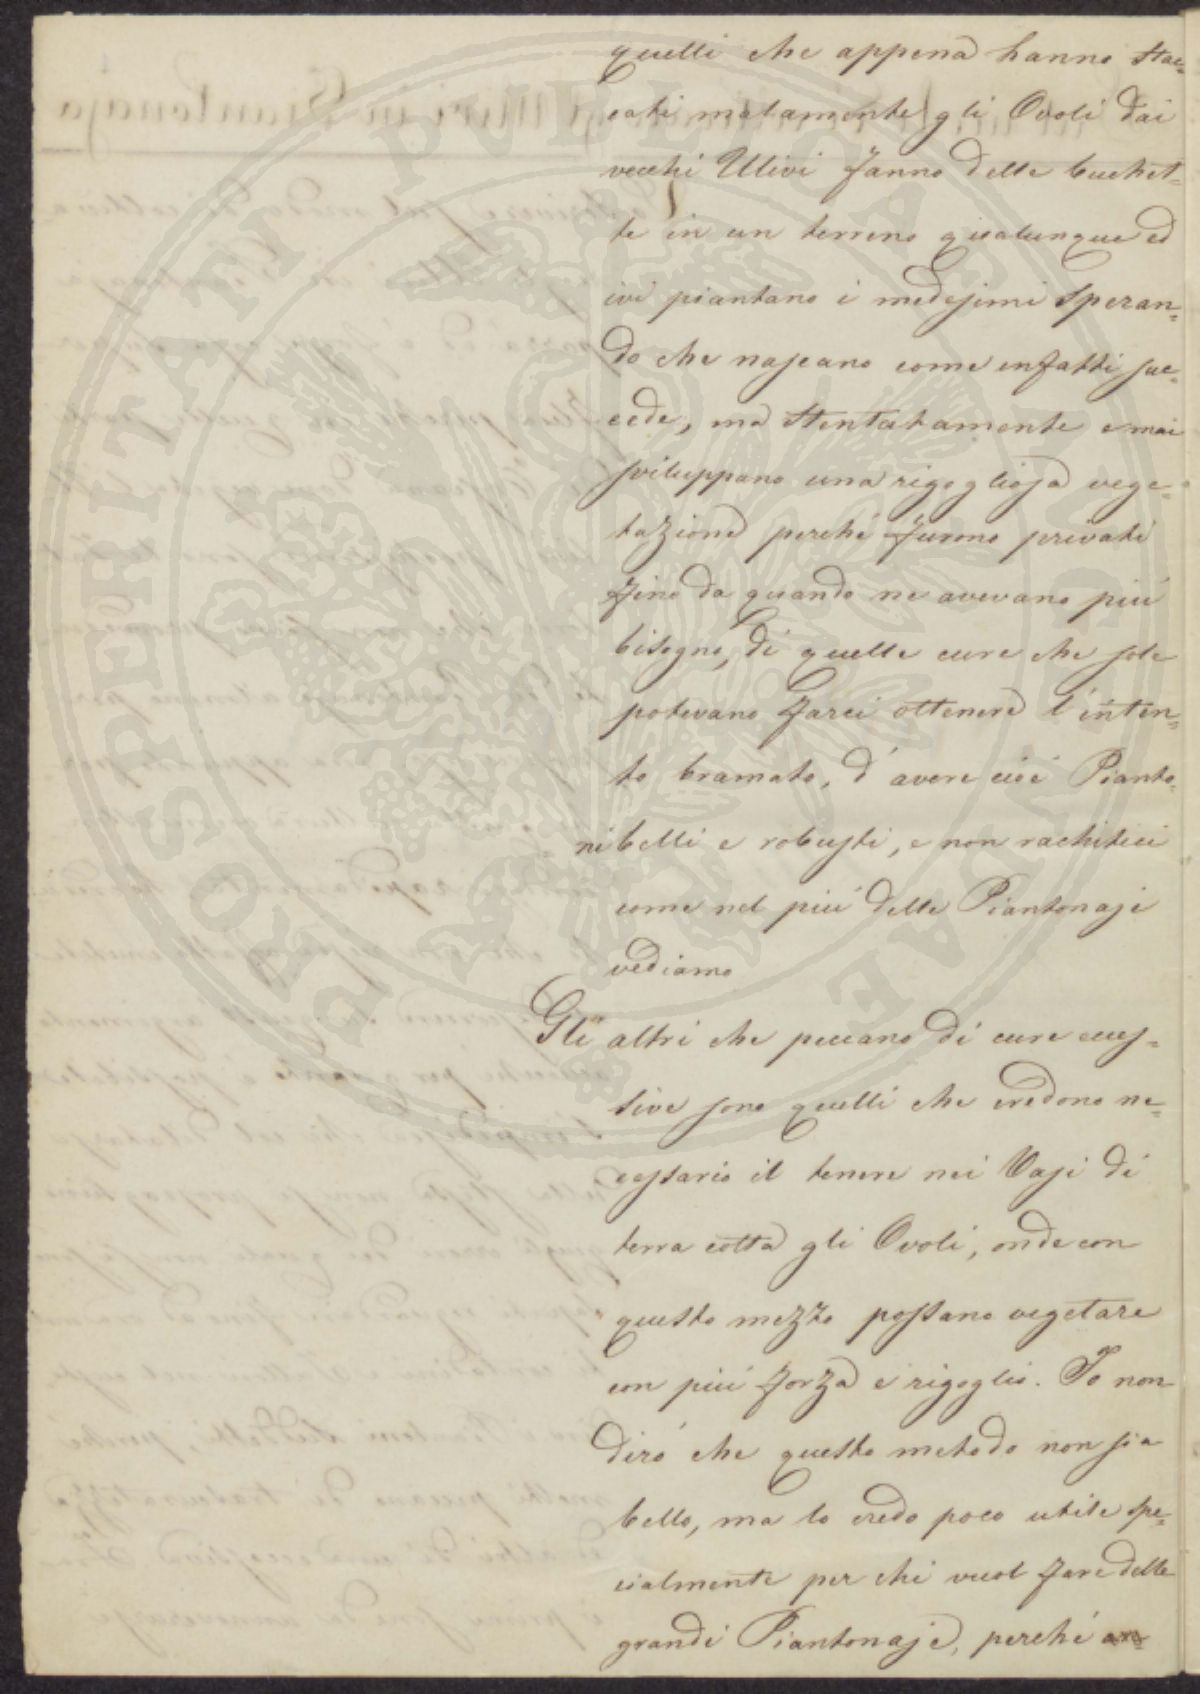 quelli che appena hanno stac=
cati malamente gli Ovoli dai
vecchi Ulivi fanno delle buchet=
te in un terreno qualunque ed
ivi piantano i medesimi speran=
do che nascano come infatti suc=
cede, ma stentatamente e mai
sviluppano una rigogliosa vege=
tazione perché furono privati
fino da quando ne avevano più
bisogno, di quelle cure che sole
potevano farci ottenere l'inten=
to bramato, d'avere cioè Pianto=
ni belli e robusti, e non rachitici
come nel più delle Piantonaje
vediamo
Gli altri che peccano di cure ecces=
sive sono quelli che credono ne=
cessario il tenere nei Vasi di
terra cotta gli Ovoli, onde con
questo mezzo possano vegetare
con più forza e rigoglio. Io non
dirò che questo metodo non sia
bello, ma lo credo poco utile spe=
cialmente per chi vuol fare delle
grandi Piantonaje, perché an=
PROSPERITATI PUBLICAE AUGENDAE